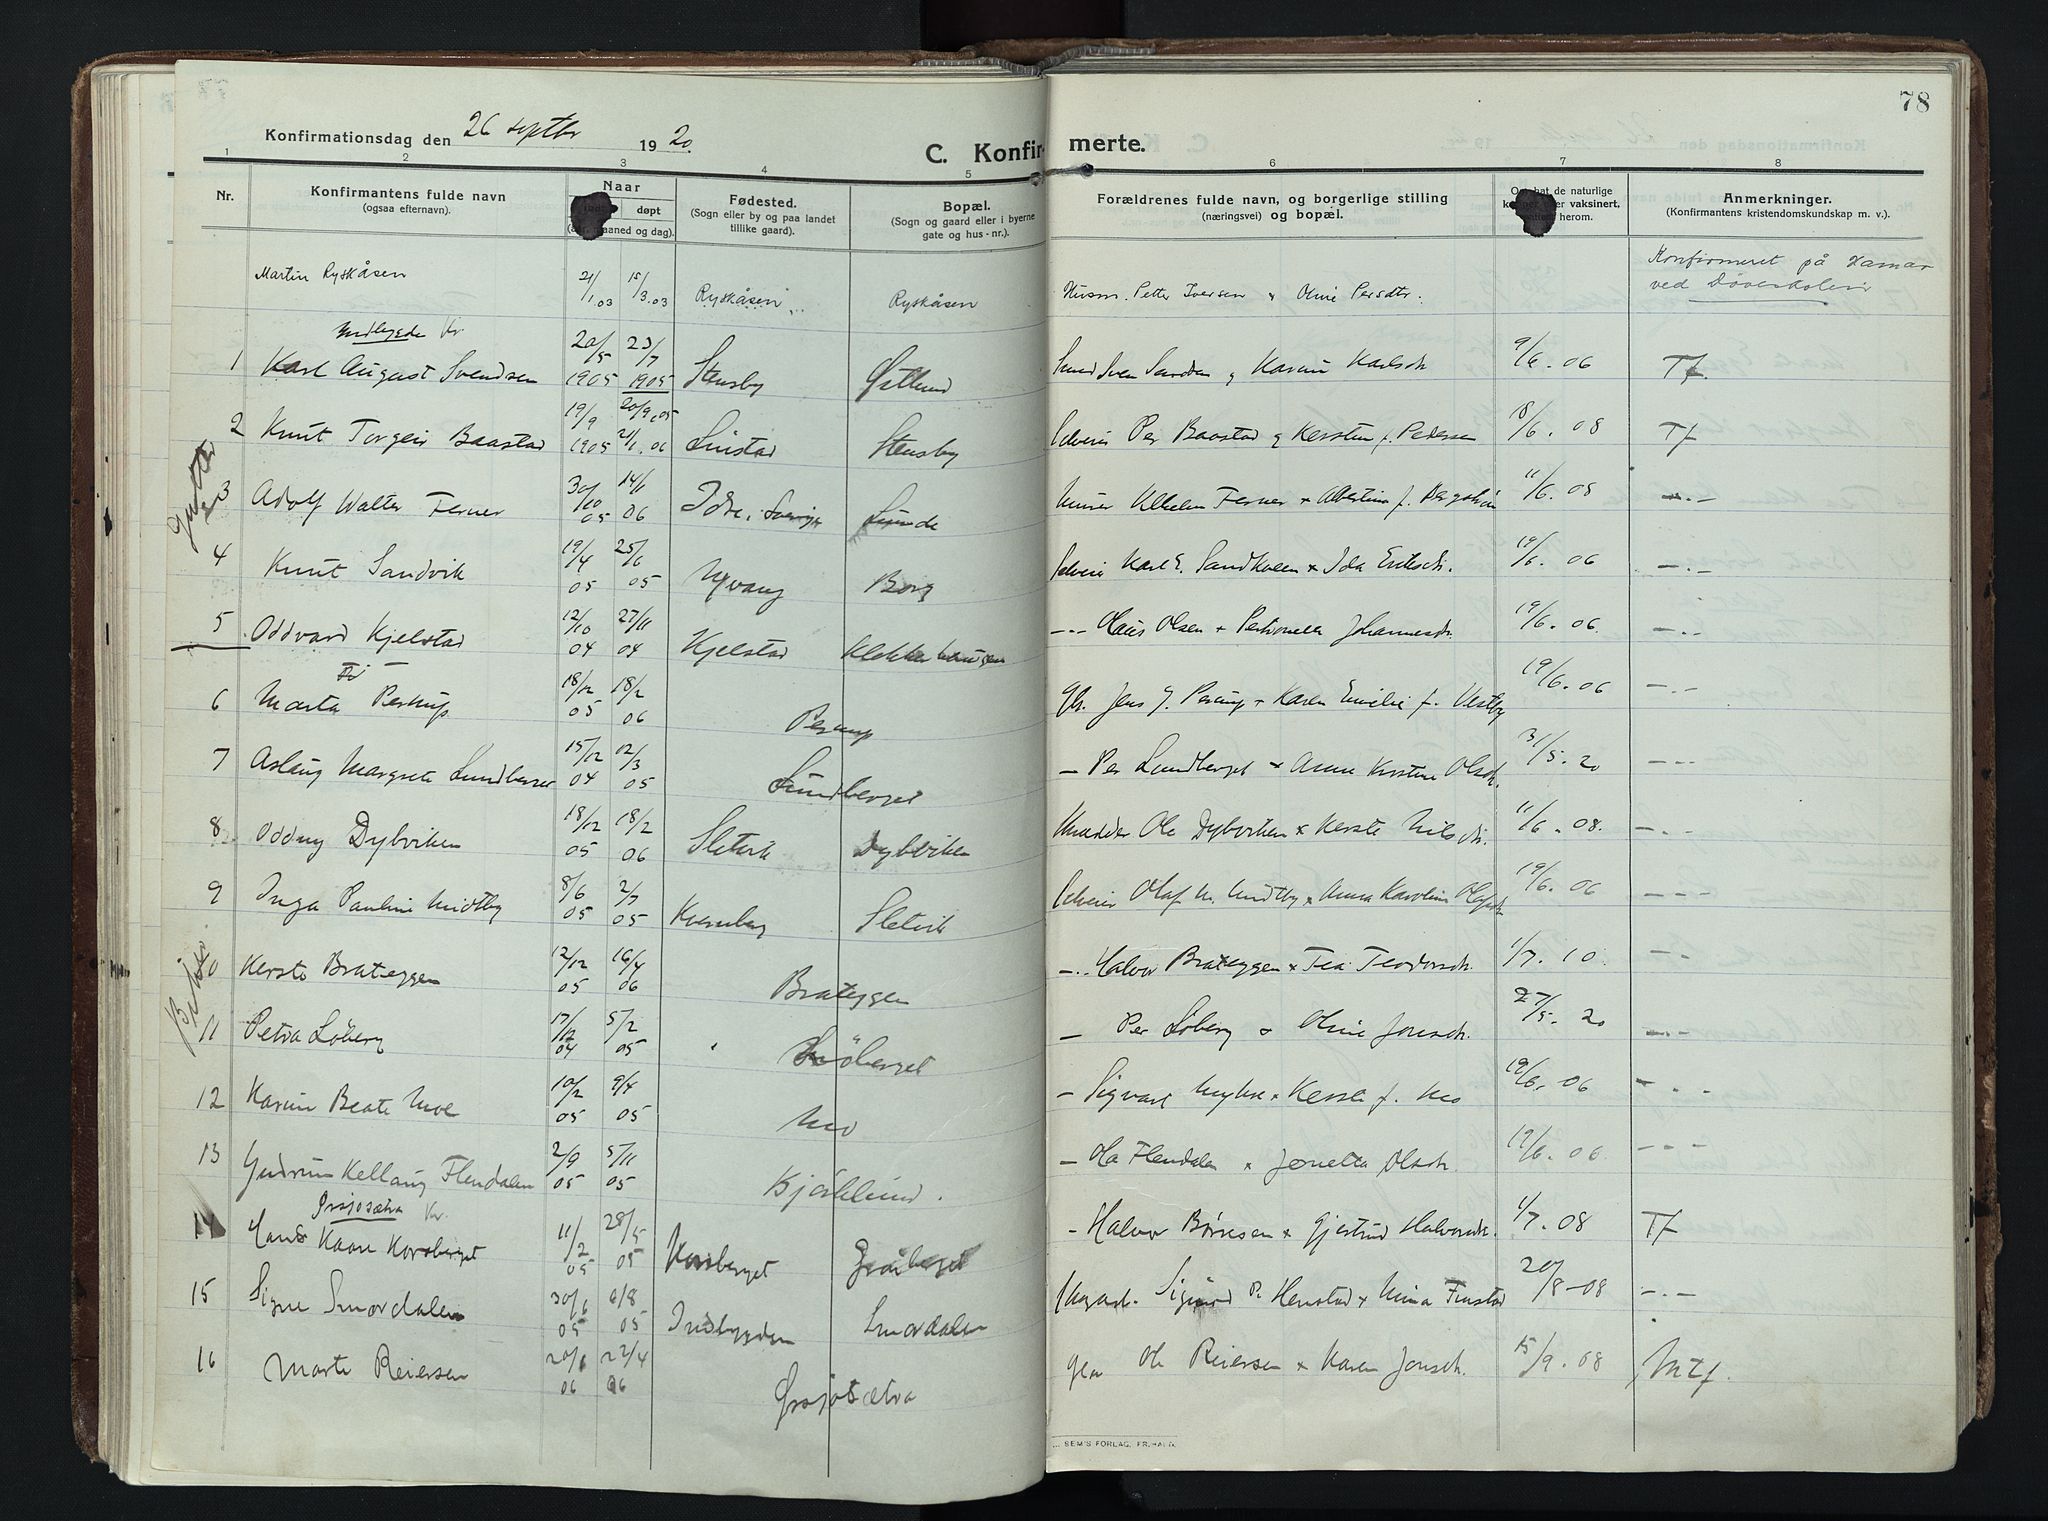 78
Konfirmationsdag den 26 septbr 1920.
C. Konfirmerte.
1 2 3 4 5 6 7 8
Nr. Konfirmantens fulde navn (ogsaa efternavn). Naar døpt maaned og dag). Fødested. (Sogn eller by og paa landet tillike gaard). Bopæl. (Sogn og gaard eller i byerne gate og hus-nr.). Forældrenes fulde navn, og borgerlige stilling (næringsvei) og bopæl. hat de naturlige vaksinert, herom. Anmerkninger. (Konfirmantens kristendomskundskap m. v.).
Martin Ryskåsen 21/1.03 15/3.03 Ryskåsen Ryskåsen Husm. Petter Iversen & Oline Persdtr. Konfirmeret på Hamar ved Døveskolen
Midtbygde Kr.
1 Karl August Svendsen 20/5 1905 23/7 1905 Stensby Østlund Karin Karlsdtr 9/6.06 Tf.
2 Knut Torgeir Baastad 19/9 1905 20/9.05 21/1.06 Linstad Stensby Selveier Per Baastad & Kersten f. Pedersen 18/6.08 Tf
Gutter
3 Adolf Walter Ferner 30/10 05 14/1 06 Idre, Sverige Lunde Murer Vilhelm Ferner x Albertina f. Bergström 11/6.08 -.-
4 Knut Sandvik 19/4 05 25/6 05 Nyvang Borg Selveier Karl E. Sandkveen x Ida Eriksdtr. 19/6.06 -.-
5 Oddvard Kjelstad 12/10 04 27/11 04 Kjelstad Klokkerhaugen -.- Olaus Olsen + Pertronella Johannesdtr. 19/6.06. -.-
6 Marta Perup 18/12 05 18/2 06 Perup Jens J. Perup + Karen Emilie f. Vestby 19/6.06 -.-
7 Aslaug Margrete Lundberget 15/12 04 12/3 05 Lundberget - Per Lundberget x Anne Kirstine Olsdtr. 31/5.20 -.-
8 Oddny Dybviken 18/12 05 18/2 06 Sletvik Dybviken Ole Dybviken x Kersti Nilsdtr. 11/6.08. -.-
9 Inga Pauline Midtby 8/6 05 2/7 05 Kvernberg Sletvik Selveier Olaf M. Midtby x Anna Karoline Olafsdtr 19/6.06 ---
Piker
10 Kersti Brateggen 12/12 05 16/4 06 Brateggen -.- Halvor Brateggen x Tea Teodorsdtr. 1/7.10. -.-
11 Petra Løberg 17/12 04 5/2 05 Løberget - Per Løberg & Oline Jonsdtr. 27/5.20 -.-
12 Karin Beate Moe 10/2 05 9/4 05 Mo - Sigvart Myhre x Kersti f. Mo 19/6.06 -.-
13 Gudrun Kellaug Flendalen 2/9 05 5/11 05 Bjørklund. - Ola Flendalen x Jonetta Olsdtr. 19/6.06. ---
Grasjøsætra Kr.
14 Hans Kaare Korsberget 11/2 05 28/5 05 Korsberget Graaberget - Halvor Børresen x Gjertrud Halvorsdtr. 1/7.08 Tf
15 Signe Smordalen 30/6 05 6/8 05 Indbygden Smordalen Sigurd P. Henstad x Mina Finstad 20/8-08 -.-
16 Marte Reiersen 20/1 06 22/4 06 Grasjøsætra Ole Reiersen x Karen Jonsdtr. 15/9.08 Mtf.
SEM'S FORLAG, FR.HALD.